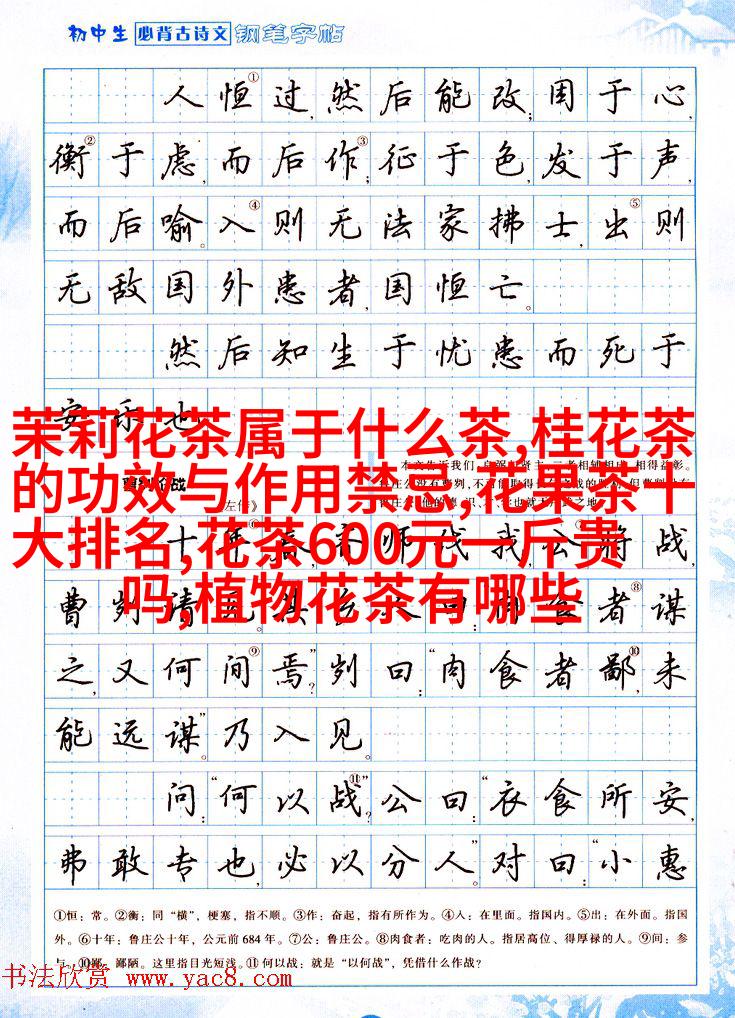 初中生 必背古诗文 钢笔字帖
人恒①过,然后能改;困于心,
衡②于虑,而后作③;征于色,发于声,
而后喻。入④则无法家拂士,出⑤则
无敌国外患者,国恒亡。
然后知生于忧患而死于
安乐也
茉莉花茶属于什么茶,桂花茶
的功效与作用禁忌,花果茶十
大排名,花茶600元一斤贵
吗,植物花茶有哪些
左传》
战,
曹刿请 食者⑧谋
之,又何间⑨焉?”刿曰:“肉食者鄙⑩,未
能远谋。”乃入见。
问:“何以战⑪?”公曰:“衣食所安,
弗敢专也,必以分人。”对曰:“小惠
①恒:常。②衡:同“横”,梗塞,指不顺。③作:奋起,指有所作为。④入:在里面。指国内。⑤出:在外面。指国
外。⑥十年:鲁庄公十年,公元前684年。⑦公:鲁庄公。⑧肉食者:吃肉的人。指居高位、得厚禄的人。⑨间:参
与。⑩鄙:鄙陋。这里指目光短浅。⑪何以战:就是“以何战”,凭借什么作战?
书法欣赏 www.yac8.com